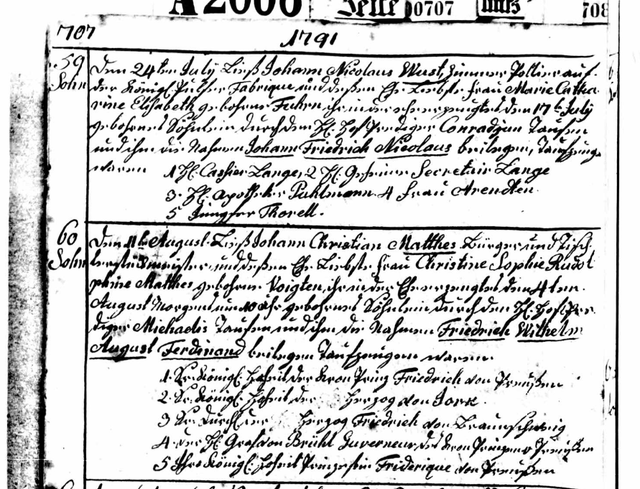 A2000 Seite 0707 bis 708
707 1791
59
Sohn
Den 24ten July ließ Johann Nicolaus Wust, Zimmer Pollier auf
der Königl. Fabrique und deßen Ehe Liebste Frau Marie Catha
rine Elisabeth gebohrne Fehrn ihr in der Ehe erzeugtes den 17t July
gebohrnes Söhnlein durch den H. Hof Prediger Conrad Taufen
und ihm die Nahmen Johann Friedrich Nicolaus beilegen, Taufzeugen
waren 1 H. Cashier Lange, 2 H. Geheimer Secretair Lange
3. H. Apotheker Puhlmann 4 Frau Arendten.
5 Jungfer Thorell.
60
Sohn
Den August ließ Johann Christian Matthes Bürger und Tisch
lermeister und deßen Ehe Liebste Frau Christine Sophie Rudol
phine Matthes gebohrne Voigten, ihr in der Ehe erzeugtes den 4ten
August Morgens um Uhr gebohrnes Söhnlein durch den H. Hof Pre
diger Michaelis Taufen und ihm die Nahmen Friedrich Wilhelm
August Ferdinand beilegen Taufzeugen waren
1 Sr. Königl. Hoheit der Kron Prinz Friedrich von Preußen
2 Sr. Königl. Hoheit der Herzog von York.
3 Sr. Durchl. der Herzog Friedrich von Braunschweig
4 der H. Graf von Brühl Guverneur des Kron Prinzen v. Preußen
5 Ihro Königl. Hoheit Prinzeßin Friderique von Preußen